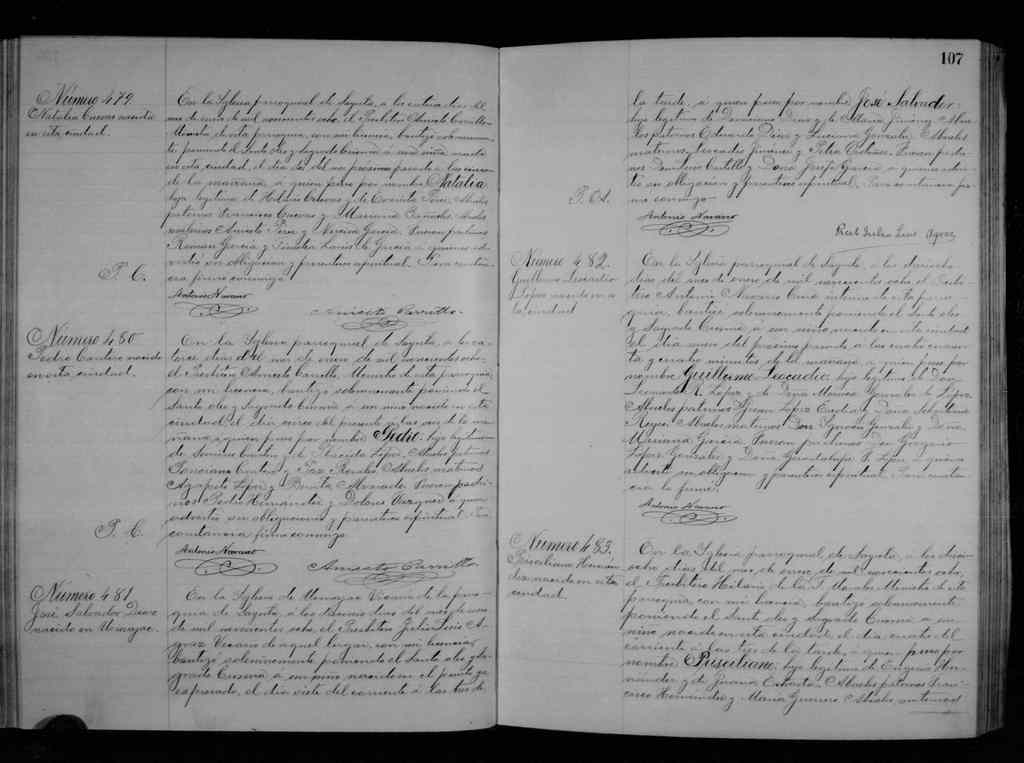 Número 479
Natalia Cuevas nacida
en esta ciudad.
En la Iglesia parroquial de Sayula, a los catorce dias del
mes de enero de mil novecientos ocho, el Presbítero Aniceto Carrillo
Ministro de esta parroquia, con mi licencia, bautizó solemnemen
te poniendo el Santo oleo y Sagrado Crisma á una niña nacida
en esta ciudad el día del mes próximo pasado a las
de la mañana, a quien puso por nombre Natalia
hija legítima de Hilario Cuevas y de Perez. Abuelos
paternos Francisco Cuevas y Mariana Abuelos
maternos Aniceto Perez y García. Fueron padrinos
Román García y de García a quienes ad
virtió su obligacion y parentesco espiritual. Para constan
cia firmo conmigo.
P. C.
Antonio Navarro
Aniceto Carrillo.
Número 480
Pedro Cantero nacido
en esta ciudad.
En la Iglesia parroquial de Sayula, á los ca
torce dias del mes de enero de mil novecientos ocho,
el Presbítero Aniceto Carrillo, Ministro de esta parroquia,
con mi licencia, bautizó solemnemente poniendo el
Santo oleo y Sagrado Crisma a un niño nacido en esta
ciudad el día cinco del presente a las seis de la ma
ñana, a quien puso por nombre Pedro: hijo legítimo
de Cantero y de López. Abuelos paternos
Ponciano Cantero y Paz Abuelos maternos
Agapito López y Benita Alvarado. Fueron padri
nos Pedro Hernández y Dolores Vazquez a quienes
advirtió su obligaciones y parentesco espiritual. Para
constancia firmo conmigo.
P. C.
Antonio Navarro
Aniceto Carrillo
Número 481
José Salvador Diaz
nacido en Usmajac.
En la Iglesia de Usmajac Vicaría de la parro
quia de Sayula, a los dias del mes de enero
de mil novecientos ocho, el Presbítero Julio Luis A
guez Vicario de aquel lugar, con mi licencia
bautizó solemnemente poniendo el Santo oleo y Sa
grado Crisma a un niño nacido en el punto ya
expresado, el día siete del corriente á las tres de
107
la tarde, a quien puso por nombre José Salvador:
hijo legítimo de Diaz y de María Jiménez. Abue
los paternos Eduardo Diaz y Luciana Gonzalez. Abuelos
maternos, Leocadio Jiménez y Petra Fueron padri
nos Don Castillo y Doña Josefa García a quienes advir
tió su obligacion y parentesco espiritual. Para constancia fir
mo conmigo.
P. A.
Antonio Navarro
Número 482.
Guillermo Leocadio
López nacido en es
ta ciudad
En la Iglesia parroquial de Sayula, a los
dias del mes de enero de mil novecientos ocho, el Presbí
tero Antonio Navarro Cura interino de esta parro
quia, bauticé solemnemente poniendo el Santo oleo
y Sagrado Crisma, á un niño nacido en esta ciudad
el día nueve del próximo pasado, a las cuatro cuaren
ta y cuatro minutos de la mañana, a quien puse por
nombre Guillermo Leocadio, hijo legítimo de Don
Leonardo R. López y de Doña Gonzalez de López.
Abuelos paternos López y Doña
Reyes. Abuelos maternos Don Ignacio Gonzalez y Doña
Mariana García. Fueron padrinos Don Gregorio
López Gonzalez y Doña Guadalupe R. López a quienes
advertí su obligacion y parentesco espiritual. Para constan
cia la firmé.
Antonio Navarro
Número 483.
Prisciliano Hernan
dez nacido en esta
ciudad.
En la Iglesia parroquial de Sayula, a los dieci
ocho dias del mes de enero de mil novecientos ocho,
el Presbítero Hilario de la T. Morales Ministro de esta
parroquia, con mi licencia, bautizó solemnemente
poniendo el Santo oleo y Sagrado Crisma a un
niño nacido en esta ciudad el día cuatro del
corriente á las tres de la tarde, a quien puso por
nombre Prisciliano: hijo legítimo de Eugenio Her
nández y de Juana Abuelos paternos Fran
cisco Hernández y María Guerrero. Abuelos maternos